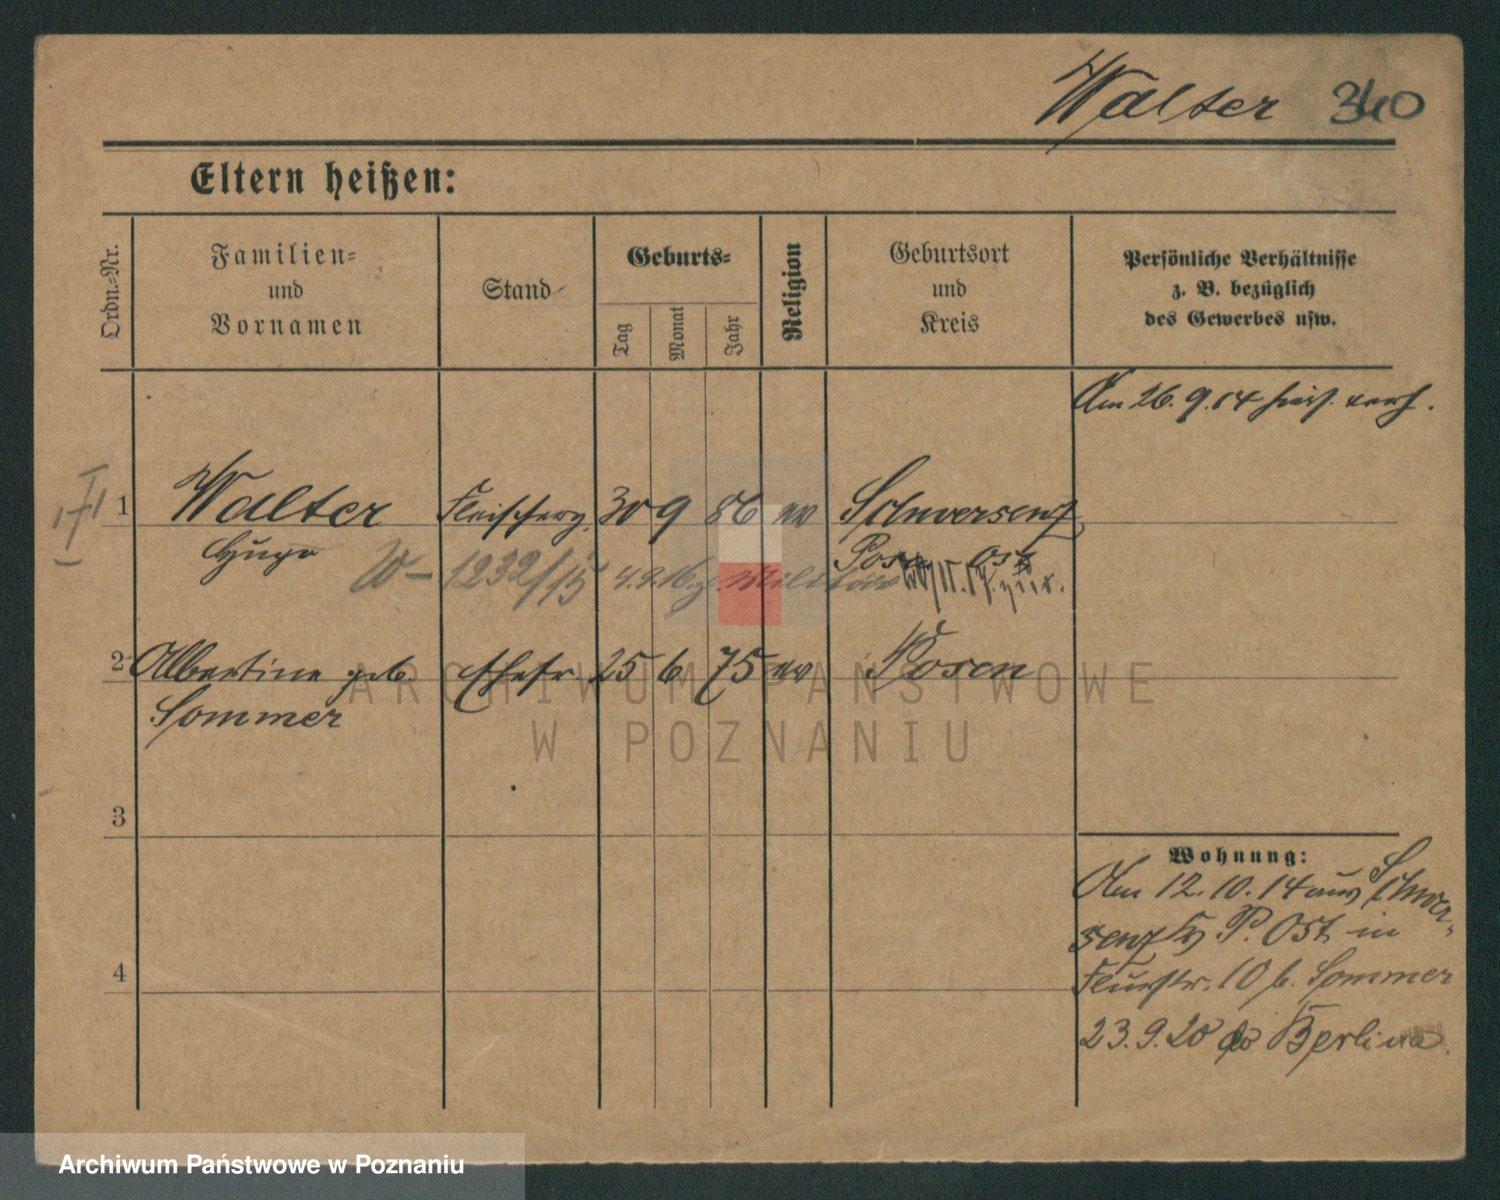 Walter 340
Eltern heißen:
Ordn.-Nr.
Familien-
und
Vornamen
Stand
Geburts-
Tag
Monat
Jahr
Religion
Geburtsort
und
Kreis
Persönliche Verhältnisse
z. B. bezüglich
des Gewerbes usw.
Am 26.9.14 hies. verh.
1 Walter Fleischerg. 30 9 86 ev Schwersenz
Hugo Posen Ost
W- 1232/15 4.9.16 z. Militär
2 Albertine geb. Ehefr 25 6 75 ev Posen
Sommer
3
4
Wohnung:
Am 12.10.14 aus Schwer-
senz Kr P. Ost in
Flurstr. 10 b. Sommer
23.9.20 Berlin
ARCHIWUM PAŃSTWOWE
W POZNANIU
Archiwum Państwowe w Poznaniu